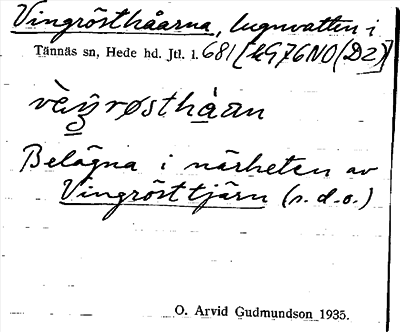 Vingrösthåarna, lugnvatten i
Tännäs sn, Hede hd. Jtl. l. 681 [kG76NO(D2)]
vèŋrøsthàan
Belägna i närheten av
Vingrösttjärn (s.d.o.)
O. Arvid Gudmundson 1935.